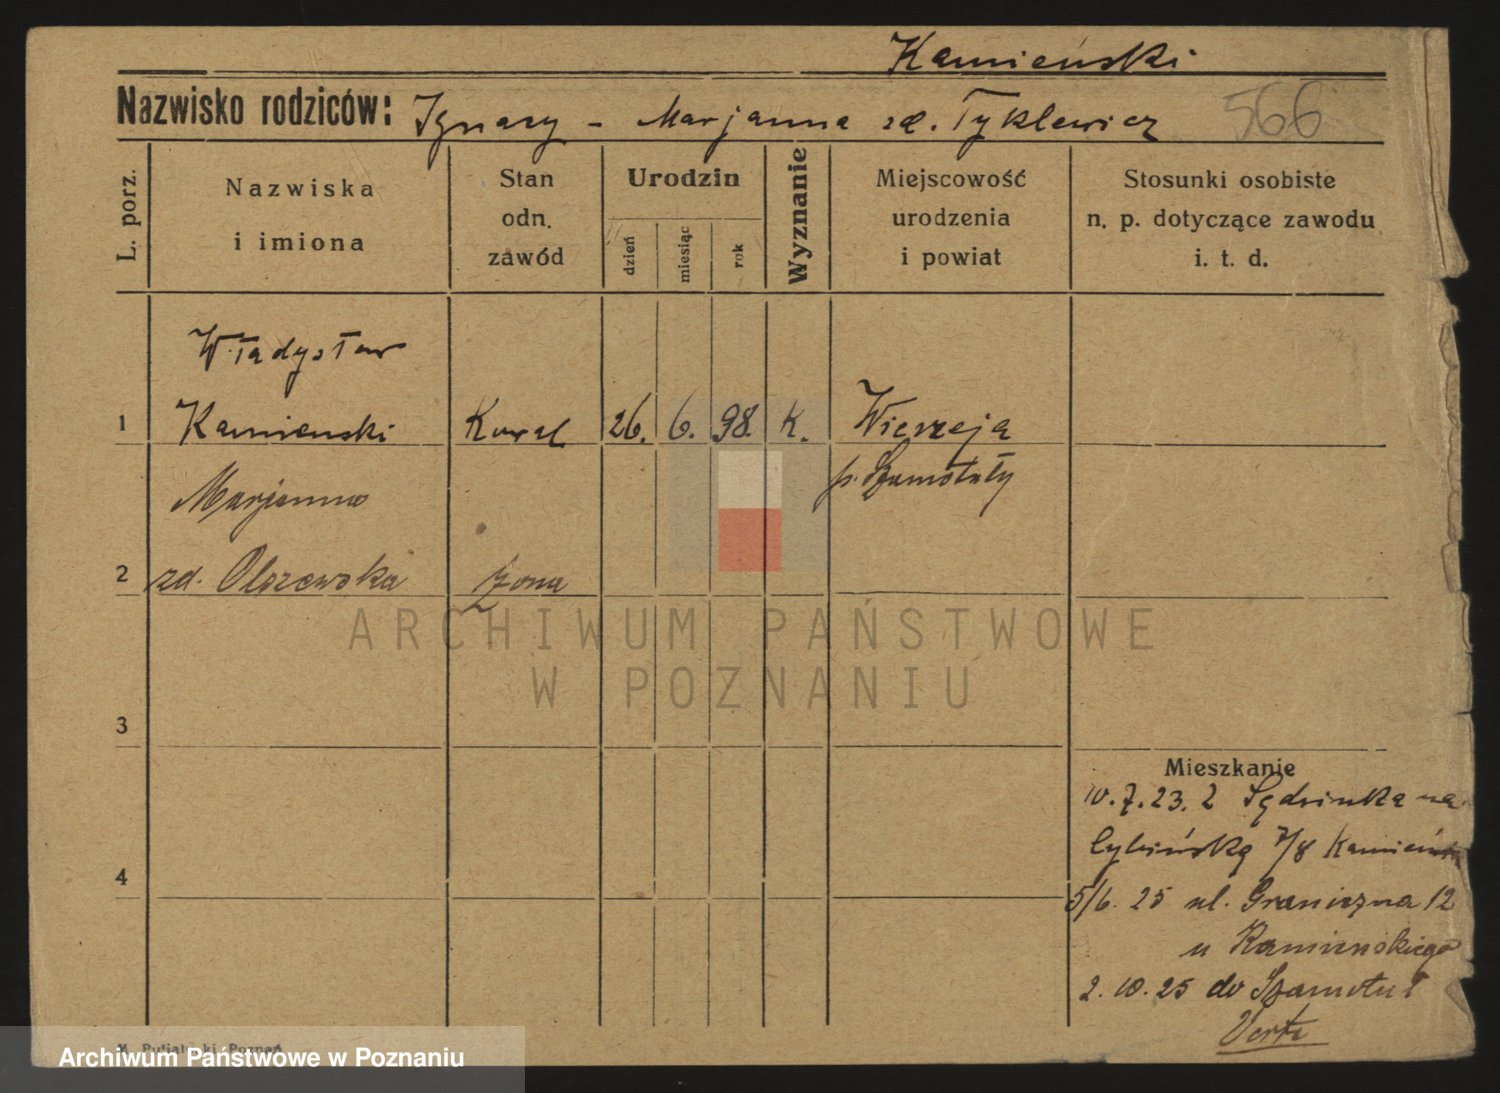 Kamieński
Nazwisko rodziców: Ignacy - Marjanna zd. Tyklewicz 566
L. porz.
Nazwiska
i imiona
Stan
odn.
zawód
Urodzin
dzień
miesiąc
rok
Wyznanie
Miejscowość
urodzenia
i powiat
Stosunki osobiste
n. p. dotyczące zawodu
i. t. d.
Władysław
1 Kamienski Kowal 26. 6. 98. K. Wierzeja
p. Szamotuły
Marjanna
2 zd. Olszewska żona
ARCHIWUM PAŃSTWOWE
W POZNANIU
3
Mieszkanie
10.7.23. z Sędzinka na
Cybińską 7/8 Kamieńsk
4
5/6. 25 ul. Graniczna 12
u Kamienskiego
2.10.25 do Szamotuł
Verte
Archiwum Państwowe w Poznaniu